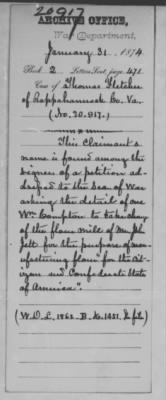 20917
ARCHIVE OFFICE,
War Department,
January 31. 1874.
Book 2 Letters Sent, page 471.
Case of Thomas Fletcher
of Rappahannock Co. Va.
(No. 20.917.)
This Claimant's
name is found among the
signers of a petition ad-
dressed to the Sec. of War
asking the detail of one
Wm. Compton to take charge
of the flour mill of Mr.
Jett for the purpose of man-
ufacturing flour for the cit-
izen and Confederate State
of America".
(W.D.L. 1862. B. 1051.